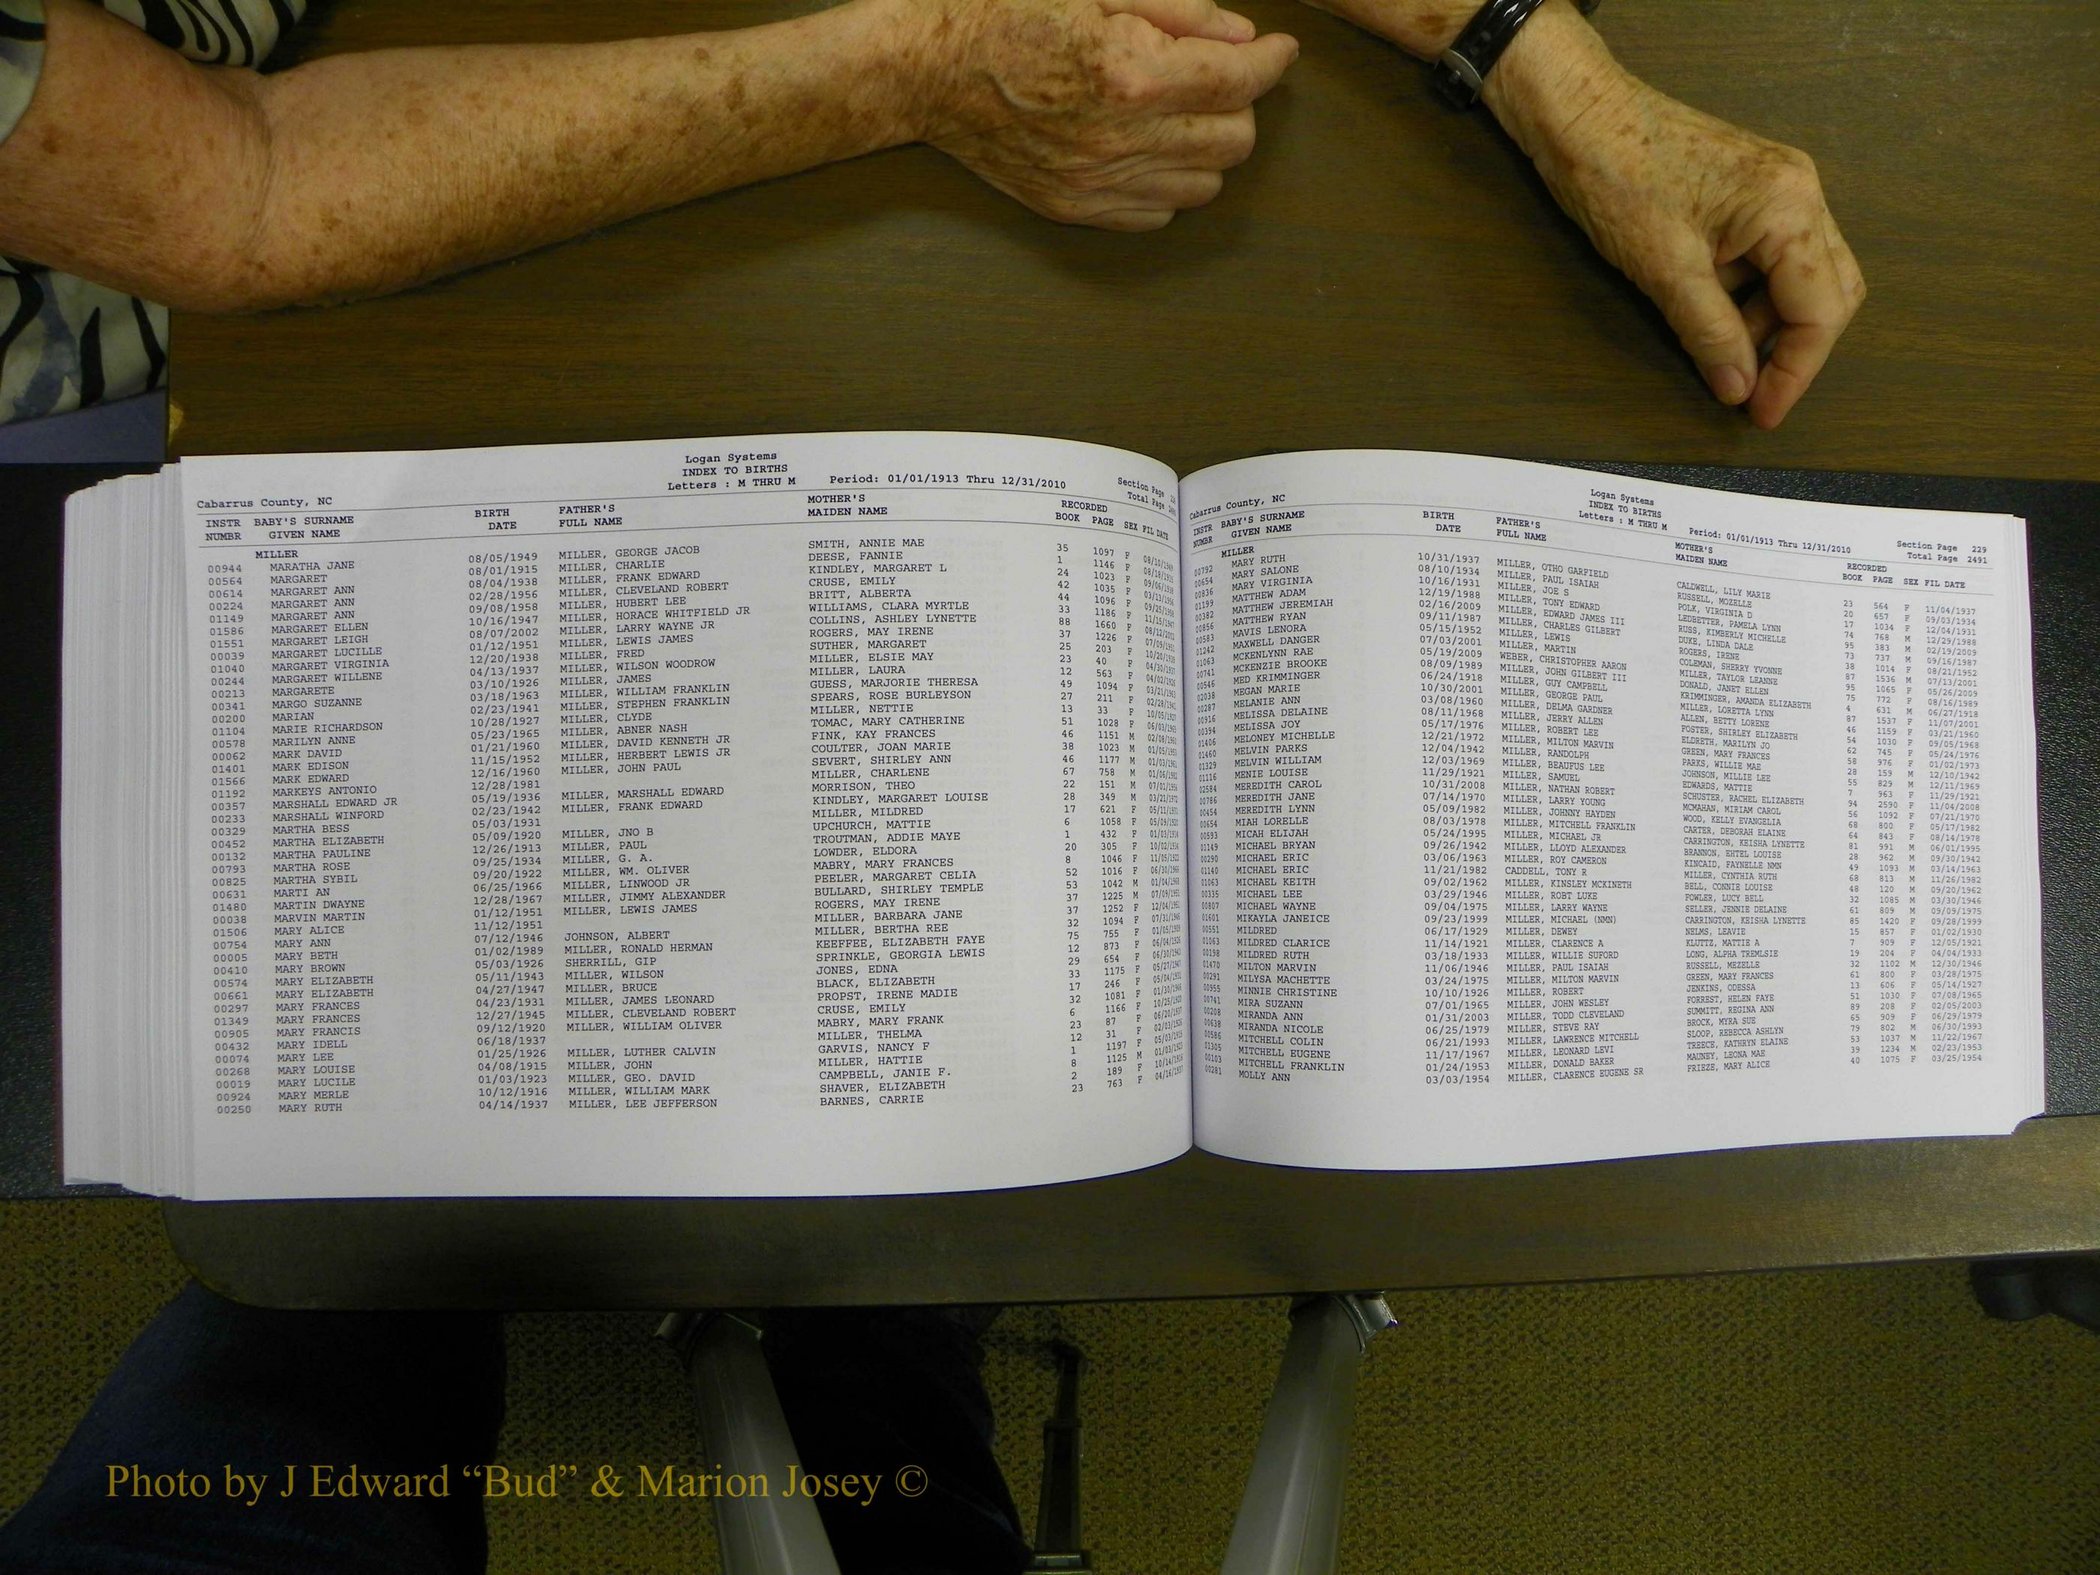 Logan Systems
INDEX TO BIRTHS
Letters : M THRU M Period: 01/01/1913 Thru 12/31/2010
Cabarrus County, NC Section Page
Total Page
INSTR NUMBR BABY'S SURNAME GIVEN NAME BIRTH DATE FATHER'S FULL NAME MOTHER'S MAIDEN NAME RECORDED BOOK PAGE SEX FIL DATE
MILLER
00944 MARATHA JANE 08/05/1949 MILLER, GEORGE JACOB SMITH, ANNIE MAE 35 1097 F
00564 MARGARET 08/01/1915 MILLER, CHARLIE DEESE, FANNIE 1 1146 F
00614 MARGARET ANN 08/04/1938 MILLER, FRANK EDWARD KINDLEY, MARGARET L 24 1023 F
00224 MARGARET ANN 02/28/1956 MILLER, CLEVELAND ROBERT CRUSE, EMILY 42 1035 F
01149 MARGARET ANN 09/08/1958 MILLER, HUBERT LEE BRITT, ALBERTA 44 1096 F
01586 MARGARET ELLEN 10/16/1947 MILLER, HORACE WHITFIELD JR WILLIAMS, CLARA MYRTLE 33 1186 F
01551 MARGARET LEIGH 08/07/2002 MILLER, LARRY WAYNE JR COLLINS, ASHLEY LYNETTE 88 1660 F
00039 MARGARET LUCILLE 01/12/1951 MILLER, LEWIS JAMES ROGERS, MAY IRENE 37 1226 F
01040 MARGARET VIRGINIA 12/20/1938 MILLER, FRED SUTHER, MARGARET 25 203 F
00244 MARGARET WILLENE 04/13/1937 MILLER, WILSON WOODROW MILLER, ELSIE MAY 23 40 F
00213 MARGARETE 03/10/1926 MILLER, JAMES MILLER, LAURA 12 563 F
00341 MARGO SUZANNE 03/18/1963 MILLER, WILLIAM FRANKLIN GUESS, MARJORIE THERESA 49 1094 F
00200 MARIAN 02/23/1941 MILLER, STEPHEN FRANKLIN SPEARS, ROSE BURLEYSON 27 211 F
01104 MARIE RICHARDSON 10/28/1927 MILLER, CLYDE MILLER, NETTIE 13 33 F
00578 MARILYN ANNE 05/23/1965 MILLER, ABNER NASH TOMAC, MARY CATHERINE 51 1028 F
00062 MARK DAVID 01/21/1960 MILLER, DAVID KENNETH JR FINK, KAY FRANCES 46 1151 M
01401 MARK EDISON 11/15/1952 MILLER, HERBERT LEWIS JR COULTER, JOAN MARIE 38 1023 M
01566 MARK EDWARD 12/16/1960 MILLER, JOHN PAUL SEVERT, SHIRLEY ANN 46 1177 M
01192 MARKEYS ANTONIO 12/28/1981 MILLER, CHARLENE 67 758 M
00357 MARSHALL EDWARD JR 05/19/1936 MILLER, MARSHALL EDWARD MORRISON, THEO 22 151 M
00233 MARSHALL WINFORD 02/23/1942 MILLER, FRANK EDWARD KINDLEY, MARGARET LOUISE 28 349 M
00329 MARTHA BESS 05/03/1931 MILLER, MILDRED 17 621 F
00452 MARTHA ELIZABETH 05/09/1920 MILLER, JNO B UPCHURCH, MATTIE 6 1058 F
00132 MARTHA PAULINE 12/26/1913 MILLER, PAUL TROUTMAN, ADDIE MAYE 1 432 F
00793 MARTHA ROSE 09/25/1934 MILLER, G. A. LOWDER, ELDORA 20 305 F
00825 MARTHA SYBIL 09/20/1922 MILLER, WM. OLIVER MABRY, MARY FRANCES 8 1046 F
00631 MARTI AN 06/25/1966 MILLER, LINWOOD JR PEELER, MARGARET CELIA 52 1016 F
01480 MARTIN DWAYNE 12/28/1967 MILLER, JIMMY ALEXANDER BULLARD, SHIRLEY TEMPLE 53 1042 M
00038 MARVIN MARTIN 01/12/1951 MILLER, LEWIS JAMES ROGERS, MAY IRENE 37 1225 M
01506 MARY ALICE 11/12/1951 MILLER, BARBARA JANE 37 1252 F
00754 MARY ANN 07/12/1946 JOHNSON, ALBERT MILLER, BERTHA REE 32 1094 F
00005 MARY BETH 01/02/1989 MILLER, RONALD HERMAN KEEFFEE, ELIZABETH FAYE 75 755 F
00410 MARY BROWN 05/03/1926 SHERRILL, GIP SPRINKLE, GEORGIA LEWIS 12 873 F
00574 MARY ELIZABETH 05/11/1943 MILLER, WILSON JONES, EDNA 29 654 F
00661 MARY ELIZABETH 04/27/1947 MILLER, BRUCE BLACK, ELIZABETH 33 1175 F
00297 MARY FRANCES 04/23/1931 MILLER, JAMES LEONARD PROPST, IRENE MADIE 17 246 F
01349 MARY FRANCES 12/27/1945 MILLER, CLEVELAND ROBERT CRUSE, EMILY 32 1081 F
00905 MARY FRANCIS 09/12/1920 MILLER, WILLIAM OLIVER MABRY, MARY FRANK 6 1166 F
00432 MARY IDELL 06/18/1937 MILLER, THELMA 23 87 F
00074 MARY LEE 01/25/1926 MILLER, LUTHER CALVIN GARVIS, NANCY F 12 31 F
00268 MARY LOUISE 04/08/1915 MILLER, JOHN MILLER, HATTIE 1 1197 F
00019 MARY LUCILE 01/03/1923 MILLER, GEO. DAVID CAMPBELL, JANIE F. 8 1125 M
00924 MARY MERLE 10/12/1916 MILLER, WILLIAM MARK SHAVER, ELIZABETH 2 189 F
00250 MARY RUTH 04/14/1937 MILLER, LEE JEFFERSON BARNES, CARRIE 23 763 F
Logan Systems
INDEX TO BIRTHS
Letters : M THRU M Period: 01/01/1913 Thru 12/31/2010
Cabarrus County, NC Section Page 229
Total Page 2491
INSTR NUMBR BABY'S SURNAME GIVEN NAME BIRTH DATE FATHER'S FULL NAME MOTHER'S MAIDEN NAME RECORDED BOOK PAGE SEX FIL DATE
MILLER
00792 MARY RUTH 10/31/1937 MILLER, OTHO GARFIELD CALDWELL, LILY MARIE 23 564 F 11/04/1937
00654 MARY SALONE 08/10/1934 MILLER, PAUL ISAIAH RUSSELL, MOZELLE 20 657 F 09/03/1934
00836 MARY VIRGINIA 10/16/1931 MILLER, JOE S POLK, VIRGINIA D 17 1034 F 12/04/1931
01199 MATTHEW ADAM 12/19/1988 MILLER, TONY EDWARD LEDBETTER, PAMELA LYNN 74 768 M 12/29/1988
00382 MATTHEW JEREMIAH 02/16/2009 MILLER, EDWARD JAMES III RUSS, KIMBERLY MICHELLE 95 383 M 02/19/2009
00856 MATTHEW RYAN 09/11/1987 MILLER, CHARLES GILBERT DUKE, LINDA DALE 73 737 M 09/16/1987
00583 MAVIS LENORA 05/15/1952 MILLER, LEWIS ROGERS, IRENE 38 1014 F 08/21/1952
01242 MAXWELL DANGER 07/03/2001 MILLER, MARTIN COLEMAN, SHERRY YVONNE 87 1536 M 07/13/2001
01063 MCKENLYNN RAE 05/19/2009 WEBER, CHRISTOPHER AARON MILLER, TAYLOR LEANNE 95 1065 F 05/26/2009
00741 MCKENZIE BROOKE 08/09/1989 MILLER, JOHN GILBERT III DONALD, JANET ELLEN 75 772 F 08/16/1989
00546 MED KRIMMINGER 06/24/1918 MILLER, GUY CAMPBELL KRIMMINGER, AMANDA ELIZABETH 4 631 M 06/27/1918
02038 MEGAN MARIE 10/30/2001 MILLER, GEORGE PAUL MILLER, LORETTA LYNN 87 1537 F 11/07/2001
00287 MELANIE ANN 03/08/1960 MILLER, DELMA GARDNER ALLEN, BETTY LORENE 46 1159 F 03/21/1960
00916 MELISSA DELAINE 08/11/1968 MILLER, JERRY ALLEN FOSTER, SHIRLEY ELIZABETH 54 1030 F 09/05/1968
00394 MELISSA JOY 05/17/1976 MILLER, ROBERT LEE ELDRETH, MARILYN JO 62 745 F 05/24/1976
01406 MELONEY MICHELLE 12/21/1972 MILLER, MILTON MARVIN GREEN, MARY FRANCES 58 976 F 01/02/1973
01460 MELVIN PARKS 12/04/1942 MILLER, RANDOLPH PARKS, WILLIE MAE 28 159 M 12/10/1942
01329 MELVIN WILLIAM 12/03/1969 MILLER, BEAUFUS LEE JOHNSON, MILLIE LEE 55 829 M 12/11/1969
01116 MENIE LOUISE 11/29/1921 MILLER, SAMUEL EDWARDS, MATTIE 7 963 F 11/29/1921
02584 MEREDITH CAROL 10/31/2008 MILLER, NATHAN ROBERT SCHUSTER, RACHEL ELIZABETH 94 2590 F 11/04/2008
00786 MEREDITH JANE 07/14/1970 MILLER, LARRY YOUNG MCMAHAN, MIRIAM CAROL 56 1092 F 07/21/1970
00456 MEREDITH LYNN 05/09/1982 MILLER, JOHNNY HAYDEN WOOD, KELLY EVANGELIA 68 800 F 05/17/1982
00654 MIAH LORELLE 08/03/1978 MILLER, MITCHELL FRANKLIN CARTER, DEBORAH ELAINE 64 843 F 08/14/1978
00593 MICAH ELIJAH 05/24/1995 MILLER, MICHAEL JR CARRINGTON, KEISHA LYNETTE 81 991 M 06/01/1995
01149 MICHAEL BRYAN 09/26/1942 MILLER, LLOYD ALEXANDER BRANNON, EHTEL LOUISE 28 962 M 09/30/1942
00290 MICHAEL ERIC 03/06/1963 MILLER, ROY CAMERON KINCAID, FAYNELLE NMN 49 1093 M 03/14/1963
01140 MICHAEL ERIC 11/21/1982 CADDELL, TONY R MILLER, CYNTHIA RUTH 68 813 M 11/26/1982
01063 MICHAEL KEITH 09/02/1962 MILLER, KINSLEY MCKINETH BELL, CONNIE LOUISE 48 120 M 09/20/1962
00335 MICHAEL LEE 03/29/1946 MILLER, ROBT LUKE FOWLER, LUCY BELL 32 1085 M 03/30/1946
00807 MICHAEL WAYNE 09/04/1975 MILLER, LARRY WAYNE SELLER, JENNIE DELAINE 61 809 M 09/09/1975
01601 MIKAYLA JANEICE 09/23/1999 MILLER, MICHAEL (NMN) CARRINGTON, KEISHA LYNETTE 85 1420 F 09/28/1999
00551 MILDRED 06/17/1929 MILLER, DEWEY NELMS, LEAVIE 15 857 F 01/02/1930
01063 MILDRED CLARICE 11/14/1921 MILLER, CLARENCE A KLUTTZ, MATTIE A 7 909 F 12/05/1921
00198 MILDRED RUTH 03/18/1933 MILLER, WILLIE SUFORD LONG, ALPHA TREMLSIE 19 204 F 04/04/1933
01470 MILTON MARVIN 11/06/1946 MILLER, PAUL ISAIAH RUSSELL, MEZELLE 32 1102 M 12/30/1946
00291 MILYSA MACHETTE 03/24/1975 MILLER, MILTON MARVIN GREEN, MARY FRANCES 61 800 F 03/28/1975
00955 MINNIE CHRISTINE 10/10/1926 MILLER, ROBERT JENKINS, ODESSA 13 606 F 05/14/1927
00741 MIRA SUZANN 07/01/1965 MILLER, JOHN WESLEY FORREST, HELEN FAYE 51 1030 F 07/08/1965
00208 MIRANDA ANN 01/31/2003 MILLER, TODD CLEVELAND SUMMITT, REGINA ANN 89 208 F 02/05/2003
00638 MIRANDA NICOLE 06/25/1979 MILLER, STEVE RAY BROCK, MYRA SUE 65 909 F 06/29/1979
00586 MITCHELL COLIN 06/21/1993 MILLER, LAWRENCE MITCHELL SLOOP, REBECCA ASHLYN 79 802 M 06/30/1993
01305 MITCHELL EUGENE 11/17/1967 MILLER, LEONARD LEVI TREECE, KATHRYN ELAINE 53 1037 M 11/22/1967
00103 MITCHELL FRANKLIN 01/24/1953 MILLER, DONALD BAKER MAUNEY, LEONA MAE 39 1234 M 02/23/1953
00281 MOLLY ANN 03/03/1954 MILLER, CLARENCE EUGENE SR FRIEZE, MARY ALICE 40 1075 F 03/25/1954
Photo by J Edward “Bud” & Marion Josey ©